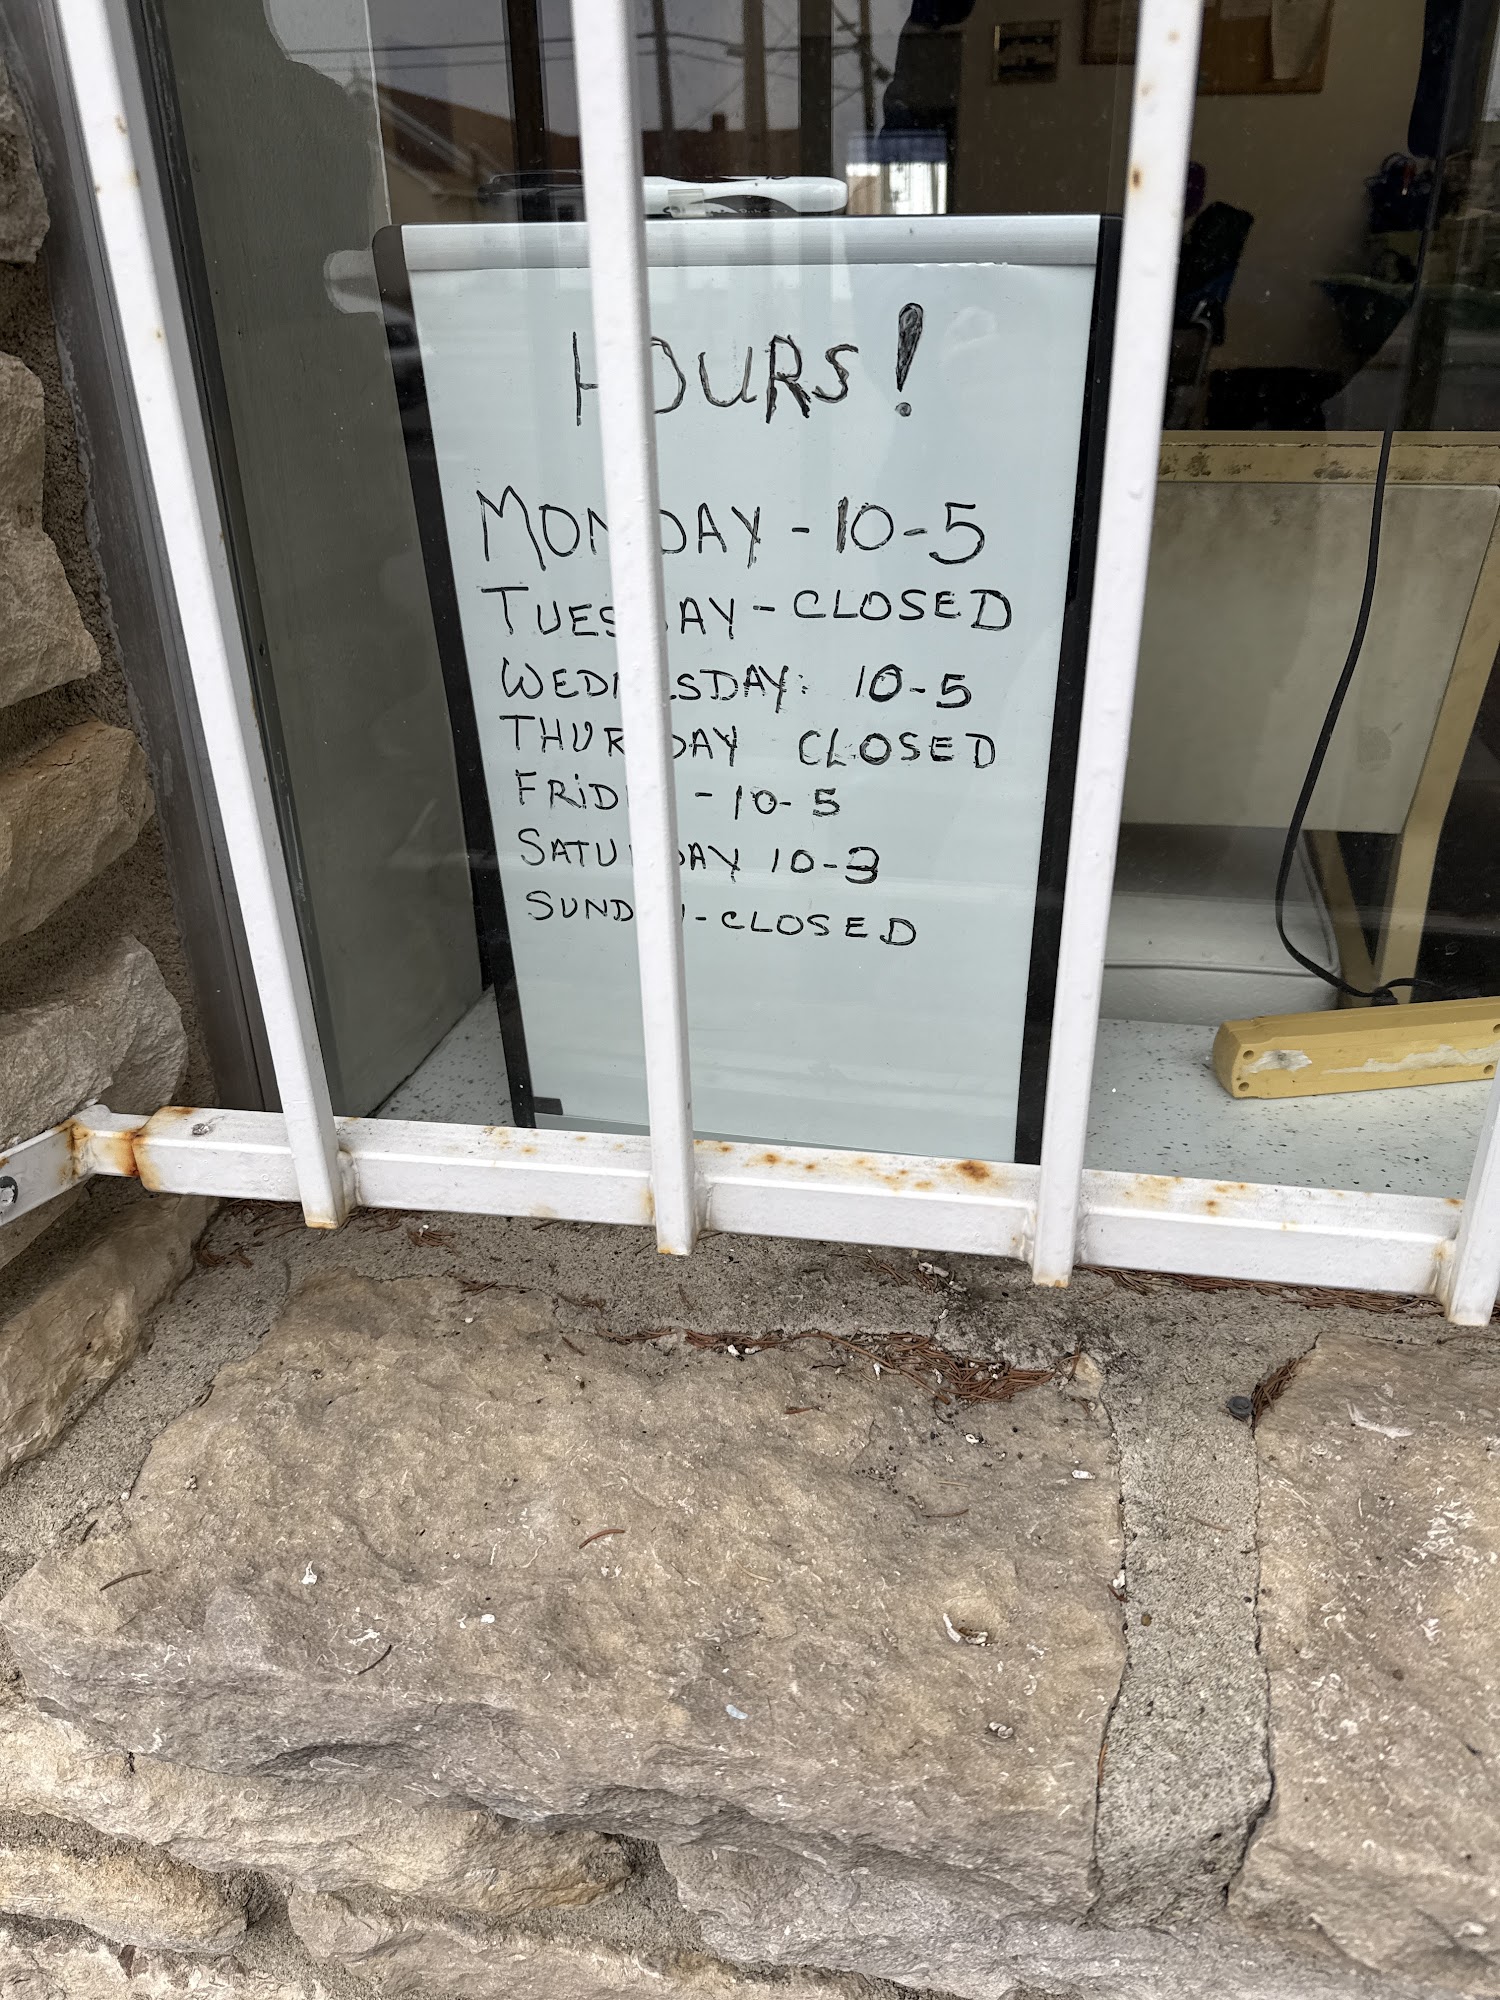 HOURS!
MONDAY - 10-5
TUESDAY - CLOSED
WEDNESDAY: 10-5
THURSDAY CLOSED
FRIDAY - 10-5
SATURDAY 10-3
SUNDAY - CLOSED